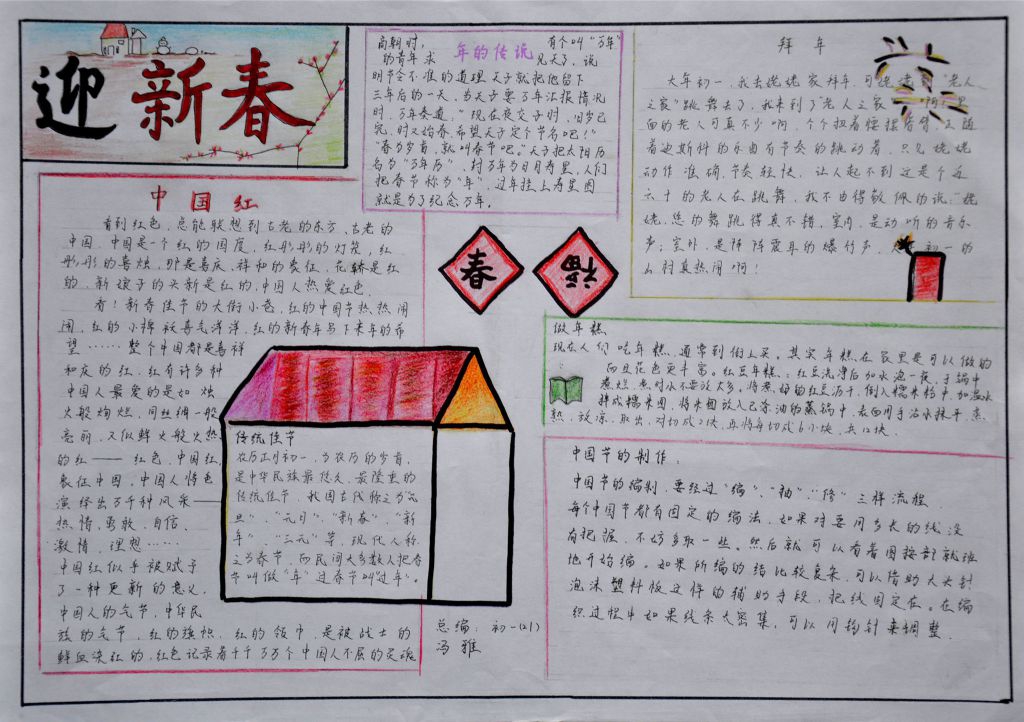 迎新春
年的传说
商朝时，有个叫“万年”
的青年求见天子，说
明节令不准的道理，天子就把他留下
三年后的一天，当天子要万年汇报情况
时，万年奏道：“现在夜交子时，旧岁已
完，时又始春，希望天子定个节名吧！”
“春为岁首，就叫春节吧。”天子把太阳历
名为“万年历”，封万年为日月寿星，人们
把春节称为“年”，过年挂上寿星图
就是为了纪念万年。
拜年
大年初一，我去姥姥家拜年，可姥姥
“老人
之家”跳舞去了，我来到了“老人之家
啊！里
面的老人可真不少啊，个个扭着腰摆臀臂，正随
着迪斯科的乐曲有节奏的跳动着，只见姥姥
动作准确，节奏轻快，让人起不到这是个近
六十的老人在跳舞，我不由得敬佩的说：“姥
姥，您的舞跳得真不错，室内，是动听的音乐
声；室外，是阵阵震耳的爆竹声，
初一的
么时真热闹啊！
中国红
看到红色，总能联想到古老的东方、古老的
中国，中国是一个红的国度，红彤彤的灯笼，红
彤彤的喜烛，那是喜庆、祥和的象征，花轿是红
的，新娘子的头新是红的，中国人热爱红色，
看！新春佳节的大街小巷，红的中国节热热闹
闹，红的小棉袄喜气洋洋，红的新春年写下来年的希
望……整个中国都是喜祥
和庆的红。红有许多种
中国人最爱的是如烛
火般绚烂，同丝绸一般
亮丽，又似鲜火般火热
的红——红色，中国红，
象征中国，中国人将色
演绎出万千种风采——
热情，勇敢，自信，
激情，理想……
中国红似乎被赋予
了一种更新的意义，
中国人的气节，中华民
族的气节，红的旗帜，红的领巾，是被战士的
鲜血染红的，红色记录着千千万万个中国人不屈的灵魂
春
福
传统佳节
农历正月初一，为农历的岁首，
是中华民族最悠久、最隆重的
传统佳节，我国古代称之为“元
旦”、“元日”、“新春”、“新
年”、“三元”等，现代人称
之为春节，而民间大多数人把春
节叫做“年”，过春节叫“过年”。
做年糕
现在人们吃年糕，通常到街上买。其实年糕在家里是可以做的
而且花色更丰富。红豆年糕：红豆洗净后加水泡一夜，于锅中
煮烂，煮时水不要放太多，将煮好的红豆沥干，倒入糯米粉中，加温水
拌成糯米团，将米团放入已涂油的蒸锅中，表面用手沾水抹平，蒸
熟，放凉，取出，对切成2块，再将每切成6小块，共12块。
中国节的制作：
中国节的编制，要经过“编”、“抽”、“修”三样流程
每个中国节都有固定的编法，如果对要用多长的线没
有把握，不妨多取一些。然后就可以看着图按部就班
地开始编。如果所编的结比较复杂，可以借助大头针
泡沫塑料板这样的辅助手段，把线固定在。在编
织过程中如果线条太密集，可以用钩针来调整．
总编：初一(2)
冯雅